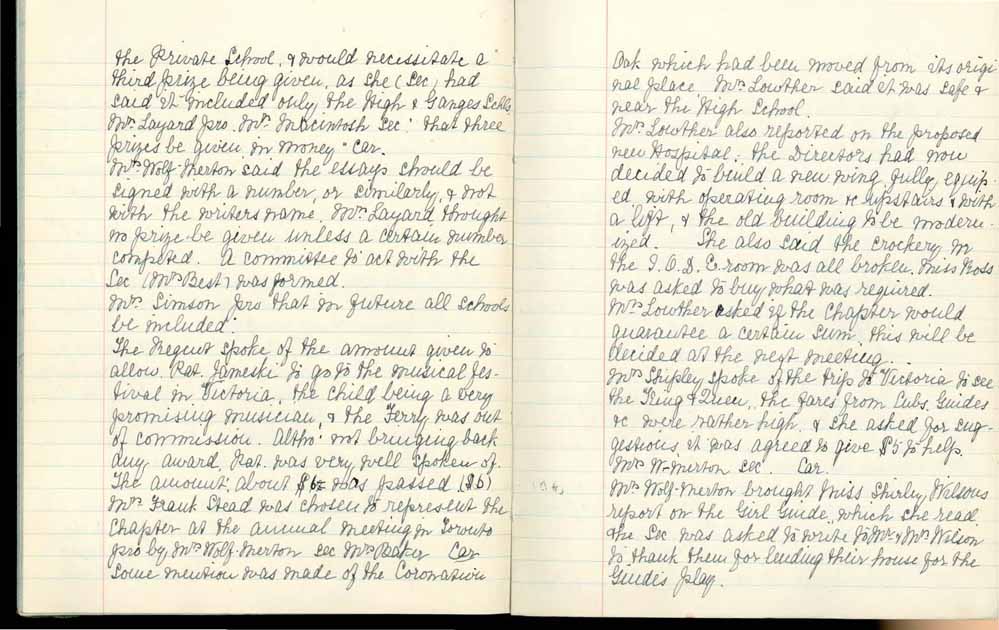 the Private School, & would necessitate a
third prize being given, as she (Sec) had
said it included only the High & Ganges Schls.
Mrs. Layard pro. Mrs. Macintosh sec: that three
prizes be given in money" Car.
Mrs. Wolf-Merton said the essays should be
signed with a number, or similarly, & not
with the writers name, Mrs. Layard thought
no prize be given unless a certain number
competed. A committee to act with the
Sec (Mrs Best) was formed.
Mrs. Simson pro that in future all schools
be included.
The Regent spoke of the amount given to
allow Pat. Jameski to go to the musical Fes-
tival in Victoria, the child being a very
promising musician, & the Ferry was out
of commission. Altho' not bringing back
any award, Pat. was very well spoken of.
The amount, about $6 was passed ($6)
Mrs Frank Stead was chosen to represent the
Chapter at the annual meeting in Toronto
pro by Mrs Wolf-Merton sec Mrs Car
Some mention was made of the Coronation
Oak which had been moved from its origi
nal place. Mrs Lowther said it was safe &
near the High School.
Mrs. Lowther also reported on the proposed
new Hospital; the Directors had now
decided to build a new wing, fully equip-
ed with operating room &c upstairs & with
a lift, & the old building to be modern-
ized. She also said the crockery in
the I.O.D.E. room was all broken, Miss Ross
was asked to buy what was required.
Mrs Lowther asked if the Chapter would
guarantee a certain sum, this will be
decided at the next meeting.
Mrs Shipley spoke of the trip to Victoria to see
the King & Queen, the fares from Cubs, Guides
&c were rather high, & she asked for sug-
gestions, it was agreed to give $5 to help.
Mrs W-Merton sec. Car.
Mrs Wolf-Merton brought Miss Shirley Wilsons
report on the Girl Guide, which she read,
the Sec was asked to write to Mr & Mrs Wilson
to thank them for lending their house for the
Guides play.